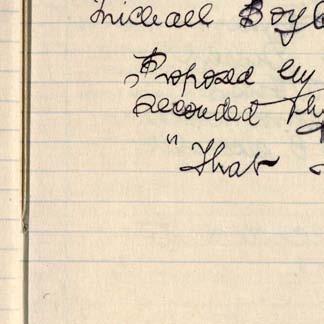 Michael Boy
Proposed by
Seconded
"That